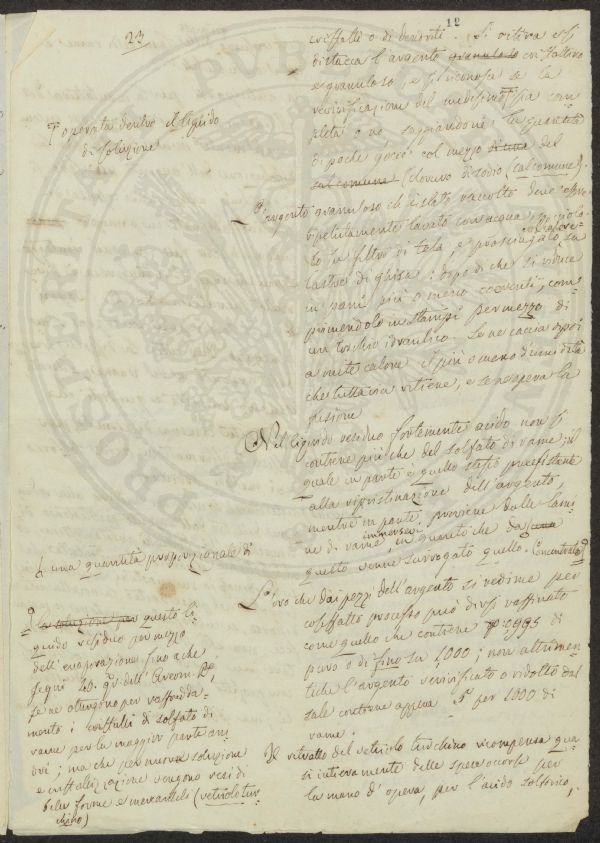 12
23
cristalli o di dendriti. Si ritira e si
distacca l'argento granuloso cristallino
e granuloso, e si riconosce se la
revivificazione del medesimo sia com-
pleta o no saggiandone la quantità
di poche goccie col mezzo di una del
sal comune (cloruro di sodio (sal comune).
L'argento granuloso ch'è stato raccolto deve essere
ripetutamente lavato con acqua,
to in filtro di tela, e prosciugato su
lastre di ghisa: dopo di che si riduce
in pani più o meno coerenti, com-
primendolo in stampi per mezzo di
un torchio idraulico. Se ne caccia dipoi
a mite calore il più o meno d'umidità
che tuttavia ritiene, e se ne opera la
fusione
Nel liquido residuo fortemente acido non si
contiene più che del solfato di rame; il
quale in parte è quello stesso preesistente
alla ripristinazione dell'argento,
mentre in parte proviene dalle lami-
ne di rame immerse, in quanto che da
questo venne surrogato quello. Concentrato
L'oro che dai pezzi dell'argento si redime per
cosiffatto processo può dirsi raffinato
come quello che contiene 0,995 di
puro o di fino su 1,000; non altrimen-
ti che l'argento revivificato o ridotto dal
sale contiene appena per 1000 di
rame.
Il ritratto del vetriolo turchino ricompensa qua-
si interamente delle spese occorse per
la mano d'opera, per l'acido solforico,
operata dentro il liquido
di soluzione
una quantità proporzionale di
la soluzione per questo li-
quido residuo per mezzo
dell'evaporazione fino a che
segni 40. gr. dell'Areom. Bé,
se ne ottengono per raffredda-
mento i cristalli di solfato di
rame per la maggior parte
; ma che per nuova soluzione
e cristallizzazione vengono resi di
belle forme e mercantili (vetriolo tur-
chino)